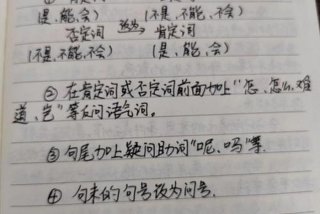 (是、能、会) (不是、不能、不会)
否定词 改为 肯定词
(不是、不能、不会) (是、能、会)
② 在肯定词或否定词前面加上“怎、怎么、难
道、岂”等反问语气词。
③ 句尾加上疑问助词“呢、吗”等.
④ 句末的句号改为问号.